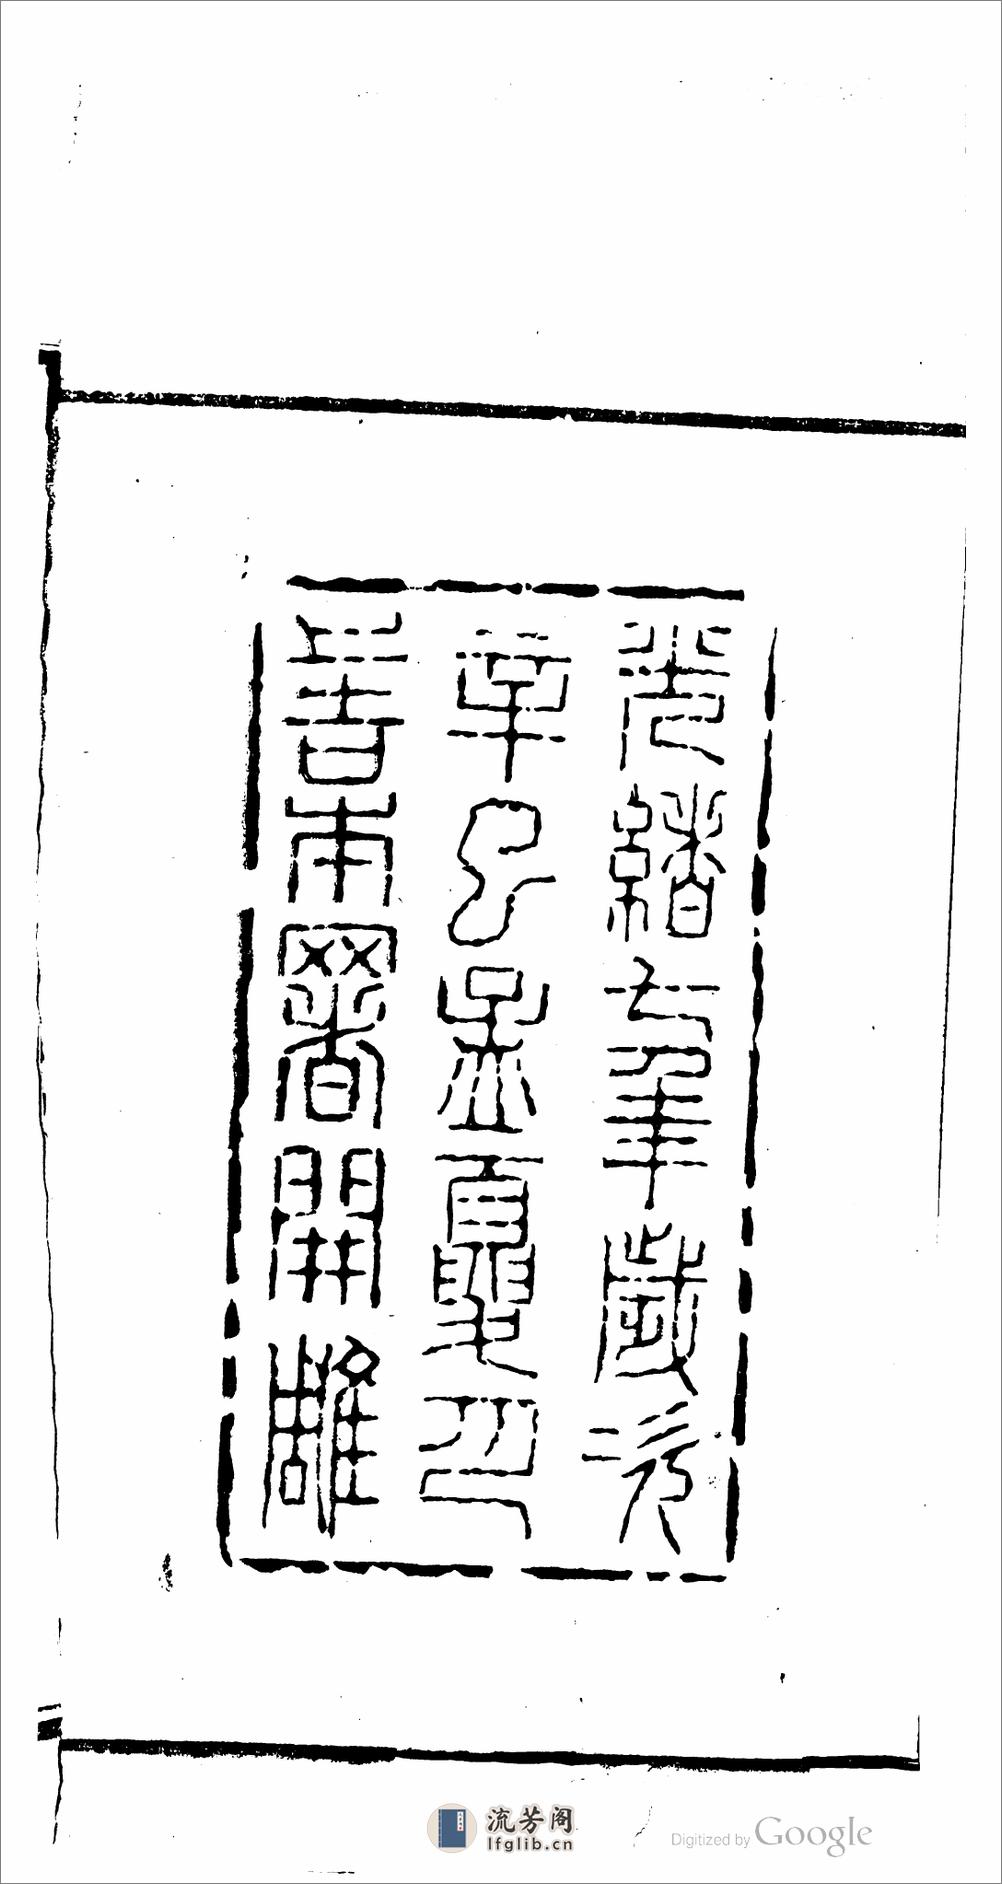 光緒七年歲次
辛巳孟夏
署開雕
流芳阁
lfglib.cn
Digitized by Google